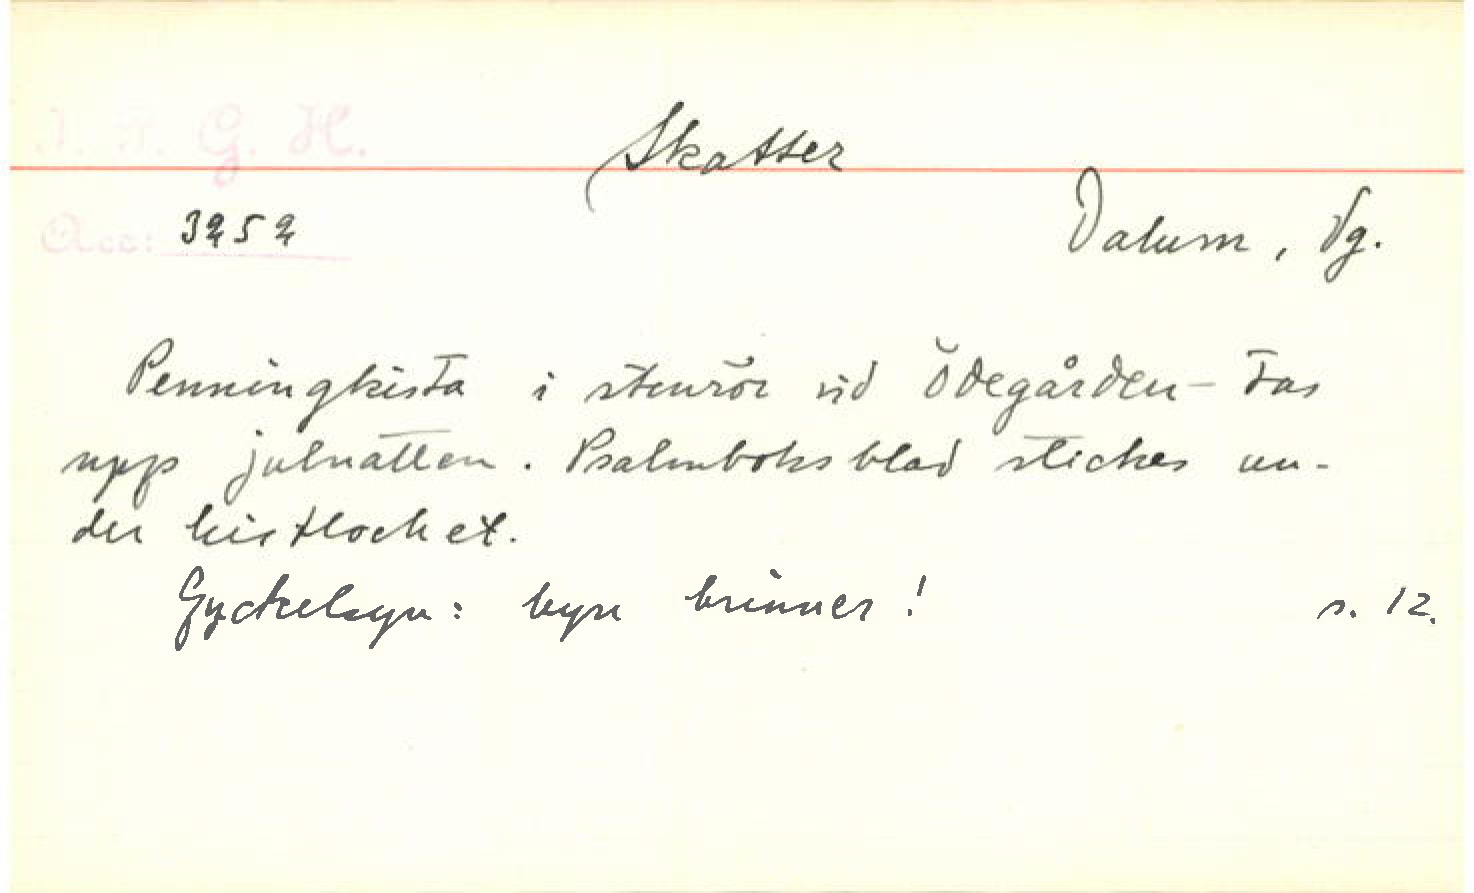 I. F. G. H.
Skatter
Acc: 3252
Dalum, Vg.
Penningkista i stenrör vid Ödegården – Tas
upp julnatten. Psalmboksblad stickes un-
der kistlocket.
Gyckelsyn: byn brinner!
s. 12.